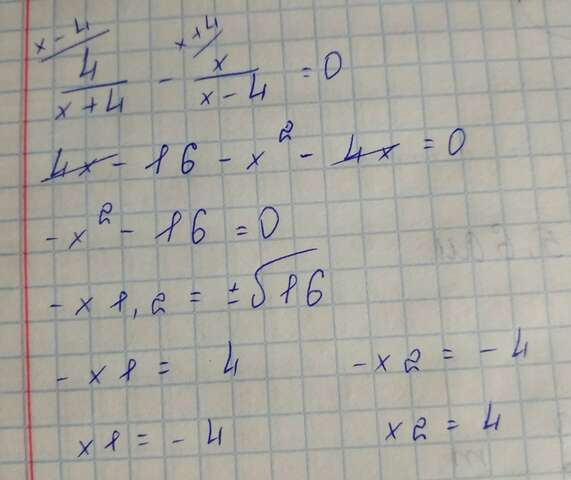 x - 4 x + 4
4/(x + 4) - x/(x - 4) = 0
4x - 16 - x² - 4x = 0
-x² - 16 = 0
-x 1,2 = ±√16
-x 1 = 4 -x 2 = -4
x 1 = -4 x 2 = 4